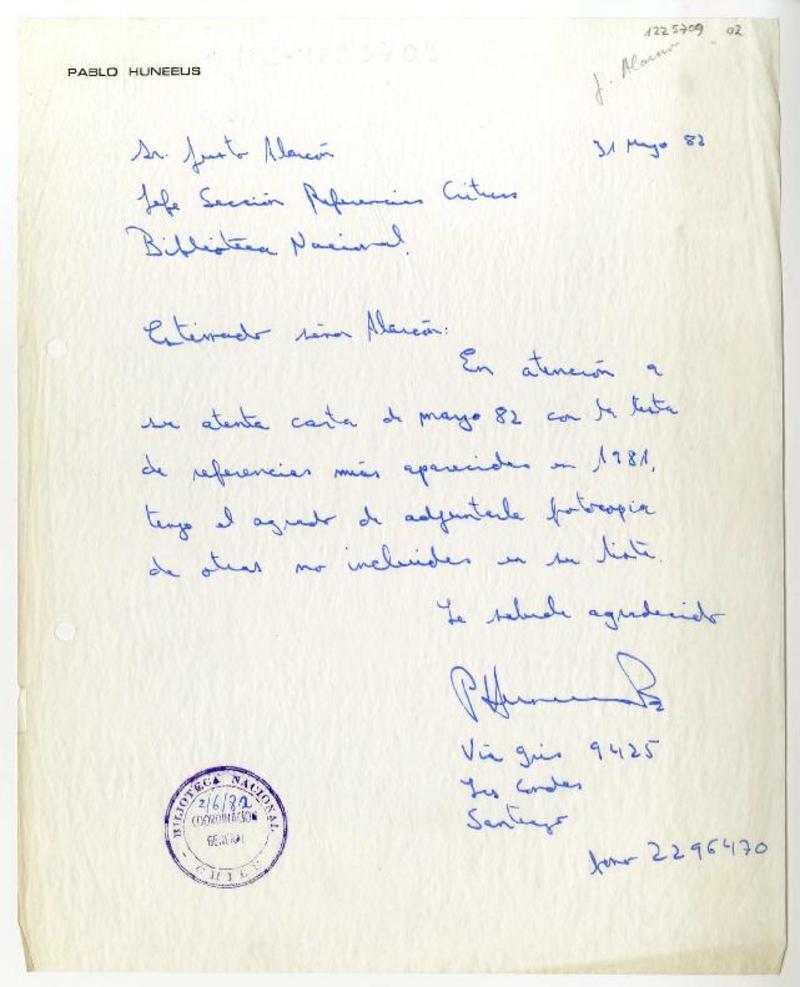 1225709 02
J. Alarcón
PABLO HUNEEUS
Sr. Justo Alarcón
31 Mayo 82
Jefe Sección Referencias Críticas
Biblioteca Nacional.
Estimado señor Alarcón:
En atención a
su atenta carta de mayo 82 con la lista
de referencias mías aparecidas en 1981,
tengo el agrado de adjuntarle fotocopia
de otras no incluidas en su lista.
Le saluda agradecido
PHuneeus
Vía gris 9425
Las Condes
Santiago
fono 2296470
BIBLIOTECA NACIONAL
2/6/82
COORDINACION
GENERAL
- CHILE -